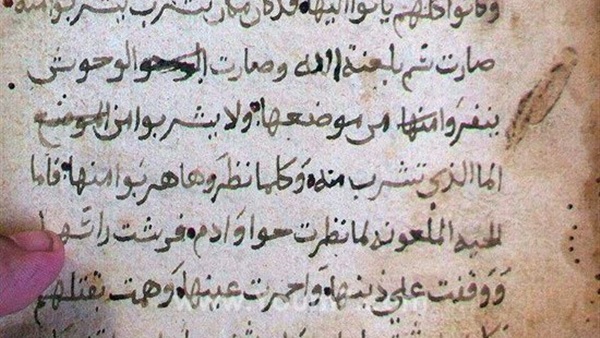 وكانوا كلهم ياتوا اليها فذكان مكان يشرب يشربوا منه
صارت شم بلعنة الله وصارت الوحوش
ينفروا منها من موضعها ولا يشربوا من الموضع
الما الذي تشرب منه وكلما نظروها هربوا منها فاما
الحيه الملعونه لما نظرت حوا وادم فرشت راسها
ووقفت علي ذنبها واحمرت عينها وهمت بقتلهم